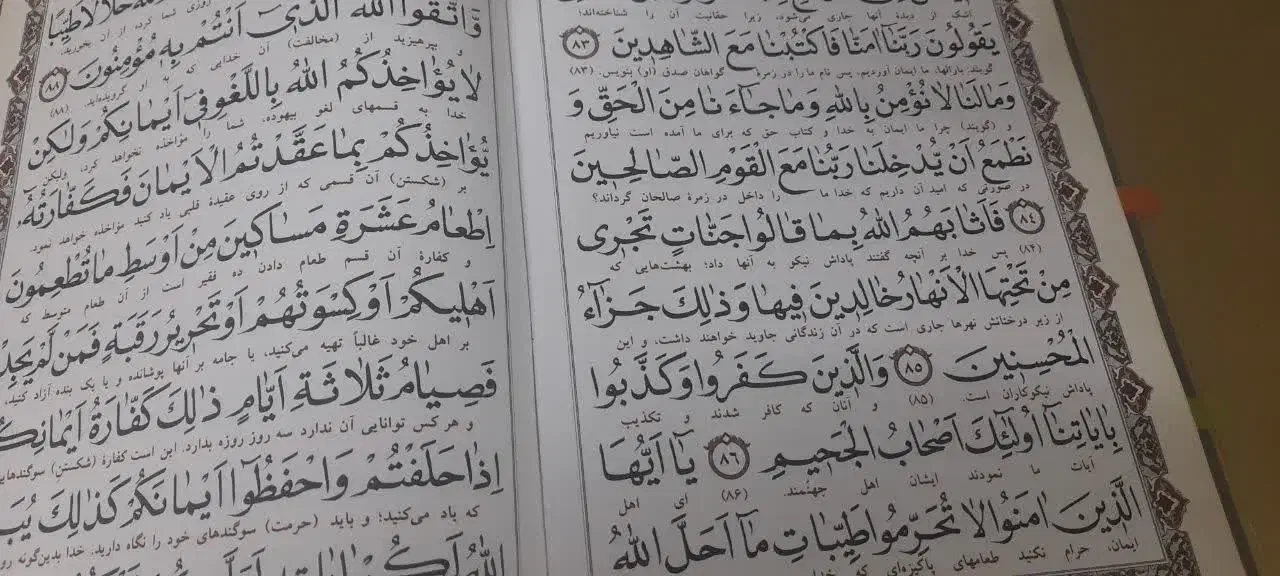 اشک از دیدهٔ آنها جاری می‌شود، زیرا حقانیت آن را شناخته‌اند؛
يَقُولُونَ رَبَّنَا اٰمَنَّا فَاكْتُبْنَا مَعَ الشَّاهِدِينَ ﴿۸۳﴾
گویند: بارالها، ما ایمان آوردیم، پس نام ما را در زمرهٔ گواهان صدق (او) بنویس. (۸۳)
وَمَا لَنَا لَا نُؤْمِنُ بِاللهِ وَمَا جَاءَنَا مِنَ الْحَقِّ وَ
و (گویند) چرا ما ایمان به خدا و کتاب حق که برای ما آمده است نیاوریم
نَطْمَعُ اَنْ يُدْخِلَنَا رَبُّنَا مَعَ الْقَوْمِ الصَّالِحِينَ
در صورتی که امید آن داریم که خدا ما را داخل در زمرهٔ صالحان گرداند؟
﴿۸۴﴾ فَاَثَابَهُمُ اللهُ بِمَا قَالُوا جَنَّاتٍ تَجْرِى
(۸۴) پس خدا بر آنچه گفتند پاداش نیکو به آنها داد؛ بهشت‌هایی که
مِنْ تَحْتِهَا الْاَنْهَارُ خَالِدِينَ فِيهَا وَذٰلِكَ جَزَاءُ
از زیر درختانش نهرها جاری است که در آن زندگانی جاوید خواهند داشت، و این
الْمُحْسِنِينَ ﴿۸۵﴾ وَالَّذِينَ كَفَرُوا وَكَذَّبُوا
پاداش نیکوکاران است. (۸۵) و آنان که کافر شدند و تکذیب
بِاٰيَاتِنَا اُولٰئِكَ اَصْحَابُ الْجَحِيمِ ﴿۸۶﴾ يَا اَيُّهَا
آیات ما نمودند ایشان اهل جهنّمند. (۸۶) ای اهل
الَّذِينَ اٰمَنُوا لَا تُحَرِّمُوا طَيِّبَاتِ مَا اَحَلَّ اللهُ
ایمان، حرام نکنید طعامهای پاکیزه‌ای که خدا
حَلَالًا طَيِّبًا
روزی شما کرده از آن بخورید
وَاتَّقُوا اللهَ الَّذِى اَنْتُمْ بِهِ مُؤْمِنُونَ ﴿۸۸﴾
و بپرهیزید از (مخالفت) آن خدایی که به او گرویده‌اید. (۸۸)
لَا يُؤَاخِذُكُمُ اللهُ بِاللَّغْوِ فِى اَيْمَانِكُمْ وَلٰكِنْ
خدا به قسمهای لغو بیهوده، شما را مؤاخذه نخواهد کرد، ولیکن
يُؤَاخِذُكُمْ بِمَا عَقَّدْتُمُ الْاَيْمَانَ فَكَفَّارَتُهُ
بر (شکستن) آن قسمی که از روی عقیدهٔ قلبی یاد کنید مؤاخذه خواهد نمود.
اِطْعَامُ عَشَرَةِ مَسَاكِينَ مِنْ اَوْسَطِ مَا تُطْعِمُونَ
و کفارهٔ آن قسم طعام دادن ده فقیر است از آن طعام متوسط که
اَهْلِيكُمْ اَوْ كِسْوَتُهُمْ اَوْ تَحْرِيرُ رَقَبَةٍ فَمَنْ لَمْ يَجِدْ
بر اهل خود غالباً تهیه می‌کنید، یا جامه بر آنها پوشانده و یا یک بنده آزاد کنید،
فَصِيَامُ ثَلَاثَةِ اَيَّامٍ ذٰلِكَ كَفَّارَةُ اَيْمَانِكُ
و هر کس توانایی آن ندارد سه روز روزه بدارد. این است کفارهٔ (شکستن) سوگندهای
اِذَا حَلَفْتُمْ وَاحْفَظُوا اَيْمَانَكُمْ كَذٰلِكَ يُبَ
که یاد می‌کنید؛ و باید (حرمت) سوگندهای خود را نگاه دارید. خدا بدین‌گونه رو
اللهُ لَكُمْ